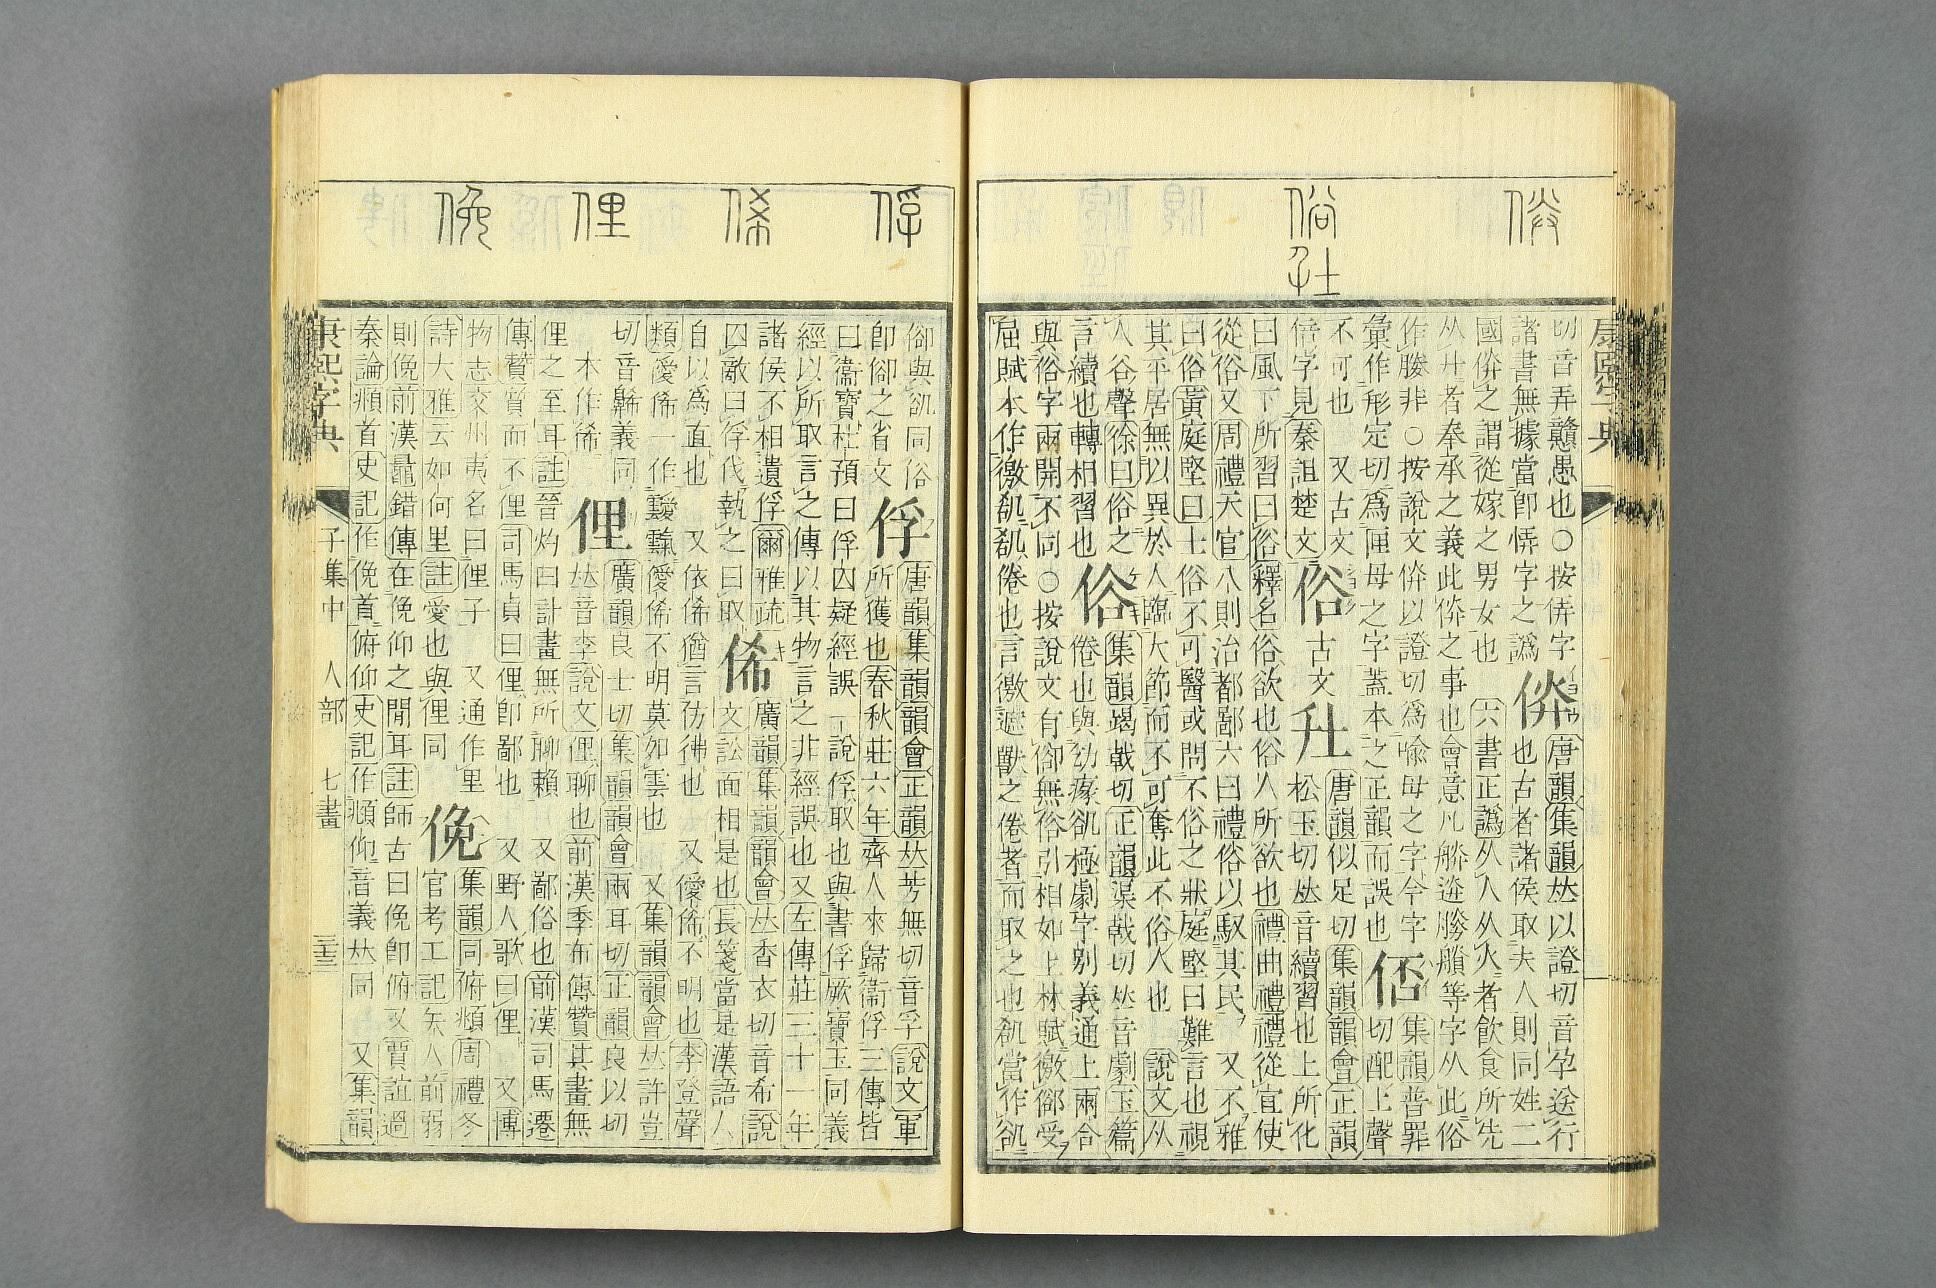 俗
切音弄戇愚也○按㑝字
諸書無據當卽㤳字之譌
㑞
唐韻集韻𠀤以證切音孕送行
也古者諸侯取夫人則同姓二
國㑞之謂從嫁之男女也 六書正譌从人从火者飲食所先
从廾者奉承之義此㑞之事也會意凡
等字从此俗
作媵非○按說文㑞以證切爲喩母之字今字
彙作形定切爲匣母之字蓋本之正韻而誤也
俖
集韻普罪
切配上聲
不可也 又古文
倍字見秦詛楚文
俗
古文
唐韻似足切集韻韻會正韻
松玉切𠀤音續習也上所化
曰風下所習曰俗釋名俗欲也俗人所欲也禮曲禮禮從宜使
從俗又周禮天官八則治都鄙六曰禮俗以馭其民 又不雅
曰俗黃庭堅曰士俗不可醫或問不俗之狀庭堅曰難言也視
其平居無以異於人臨大節而不可奪此不俗人也 說文从
人谷聲徐曰俗之
言續也轉相習也
集韻竭戟切正韻渠戟切𠀤音劇玉篇
倦也與
極劇字別義通上兩合
與俗字兩開不同○按說文有
無俗引相如上林賦徼
受
屈賦本作徼
倦也言徼遮獸之倦者而取之也
當作
卻與
同俗
卽
之省文
俘
唐韻集韻韻會正韻𠀤芳無切音孚說文軍
所獲也春秋莊六年齊人來歸衞俘三傳皆
曰衞寶杜預曰俘囚疑經誤 一說俘取也與書俘厥寶玉同義
經以所取言之傳以其物言之非經誤也又左傳莊三十一年
諸侯不相遺俘爾雅疏
囚敵曰俘伐執之曰取
俙
廣韻集韻韻會𠀤香衣切音希說
文訟面相是也長箋當是漢語人
自以爲直也 又依俙猶言仿彿也 又僾俙不明也李登聲
類僾俙一作靉霼僾俙不明莫如雲也 又集韻韻會𠀤許豈
切音豨義同
本作俙
俚
廣韻良士切集韻韻會兩耳切正韻良以切
𠀤音李說文俚聊也前漢季布傳贊其畫無
俚之至耳註晉灼曰計畫無所聊賴 又鄙俗也前漢司馬遷
傳贊質而不俚司馬貞曰俚卽鄙也 又野人歌曰俚 又博
物志交州夷名曰俚子 又通作里
詩大雅云如何里註愛也與俚同
俛
集韻同俯頫周禮冬
官考工記矢人前弱
則俛前漢鼂錯傳在俛仰之閒耳註師古曰俛卽俯又賈誼過
秦論頫首史記作俛首俯仰史記作頫仰音義𠀤同 又集韻
康熙字典
子集中 人部 七畫
俘
俙
俚
俛